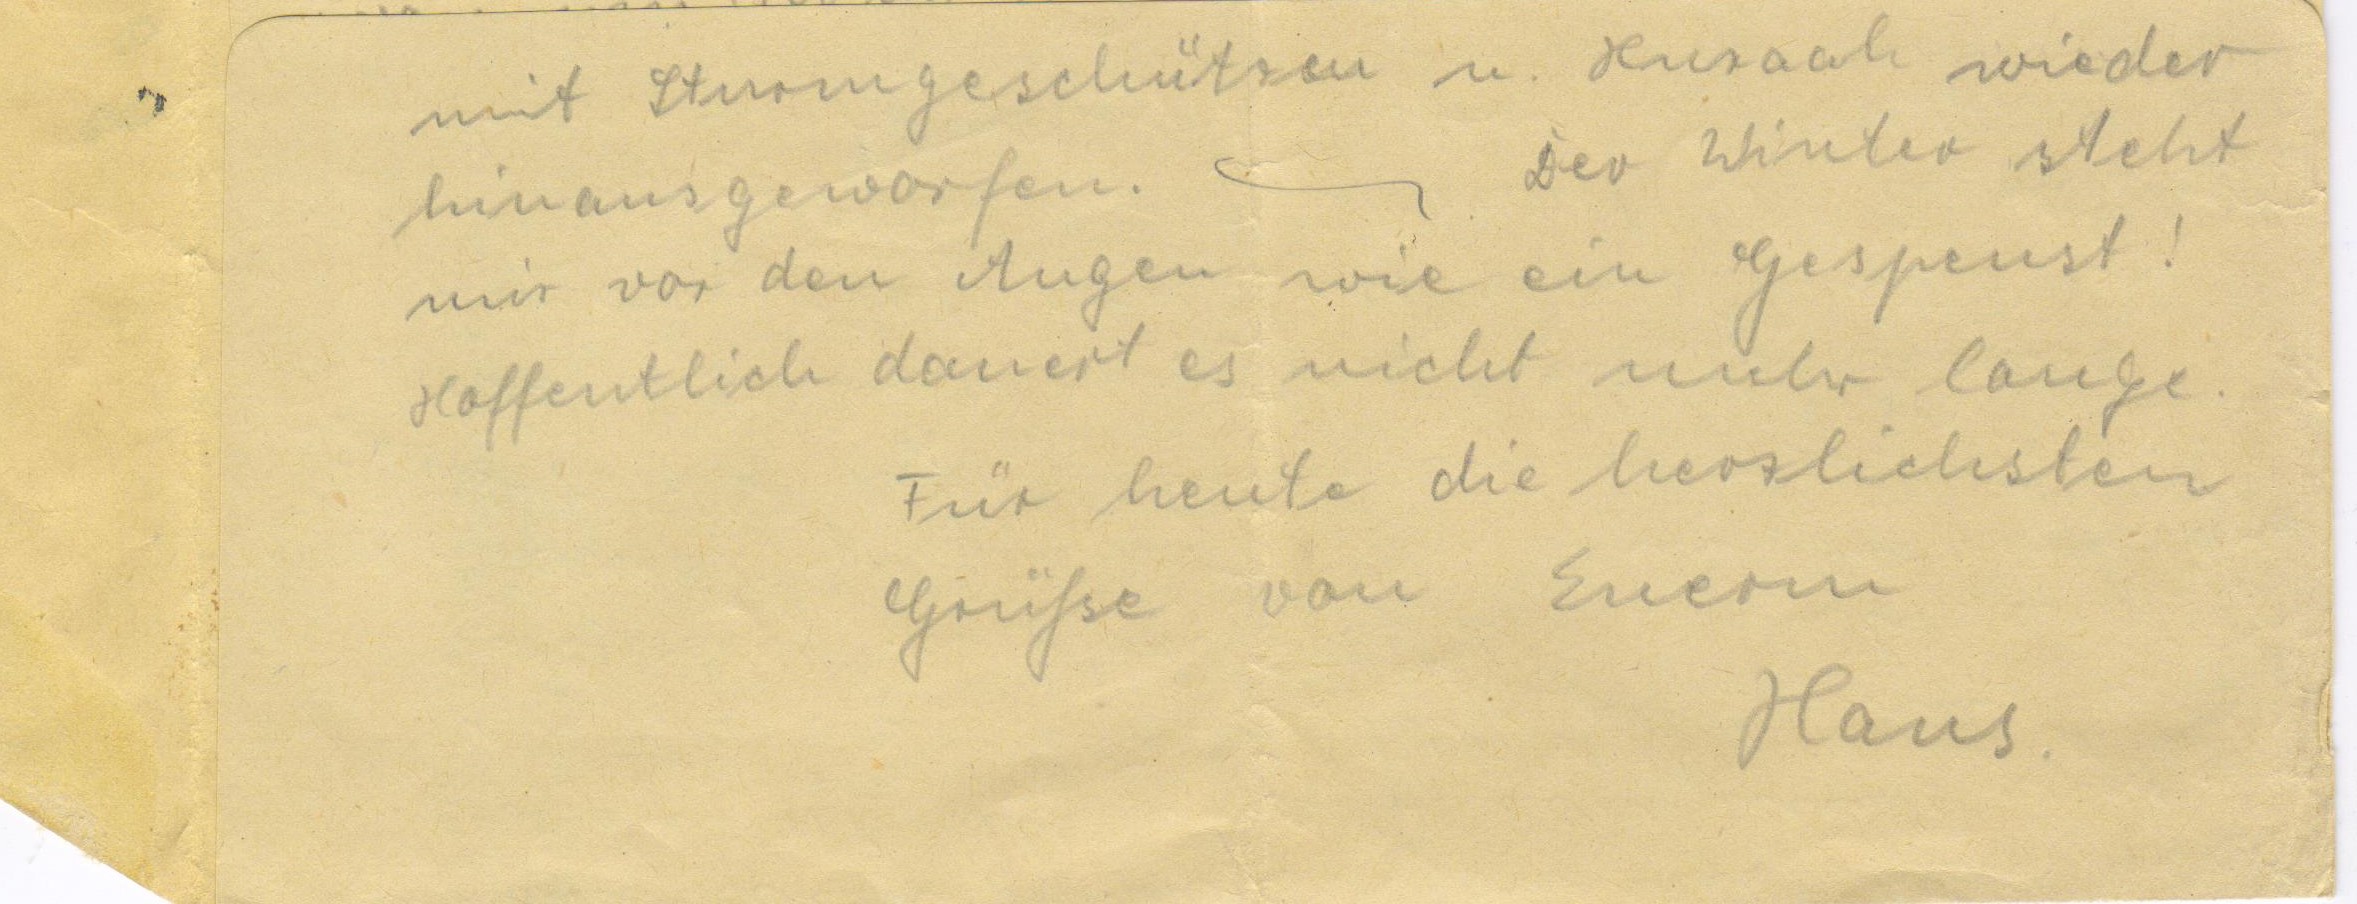 mit Sturmgeschützen u. Huraah wieder
hinausgeworfen. Der Winter steht
mir vor den Augen wie ein Gespenst!
Hoffentlich dauert es nicht mehr lange.
Für heute die herzlichsten
Grüße von Euerm
Hans.